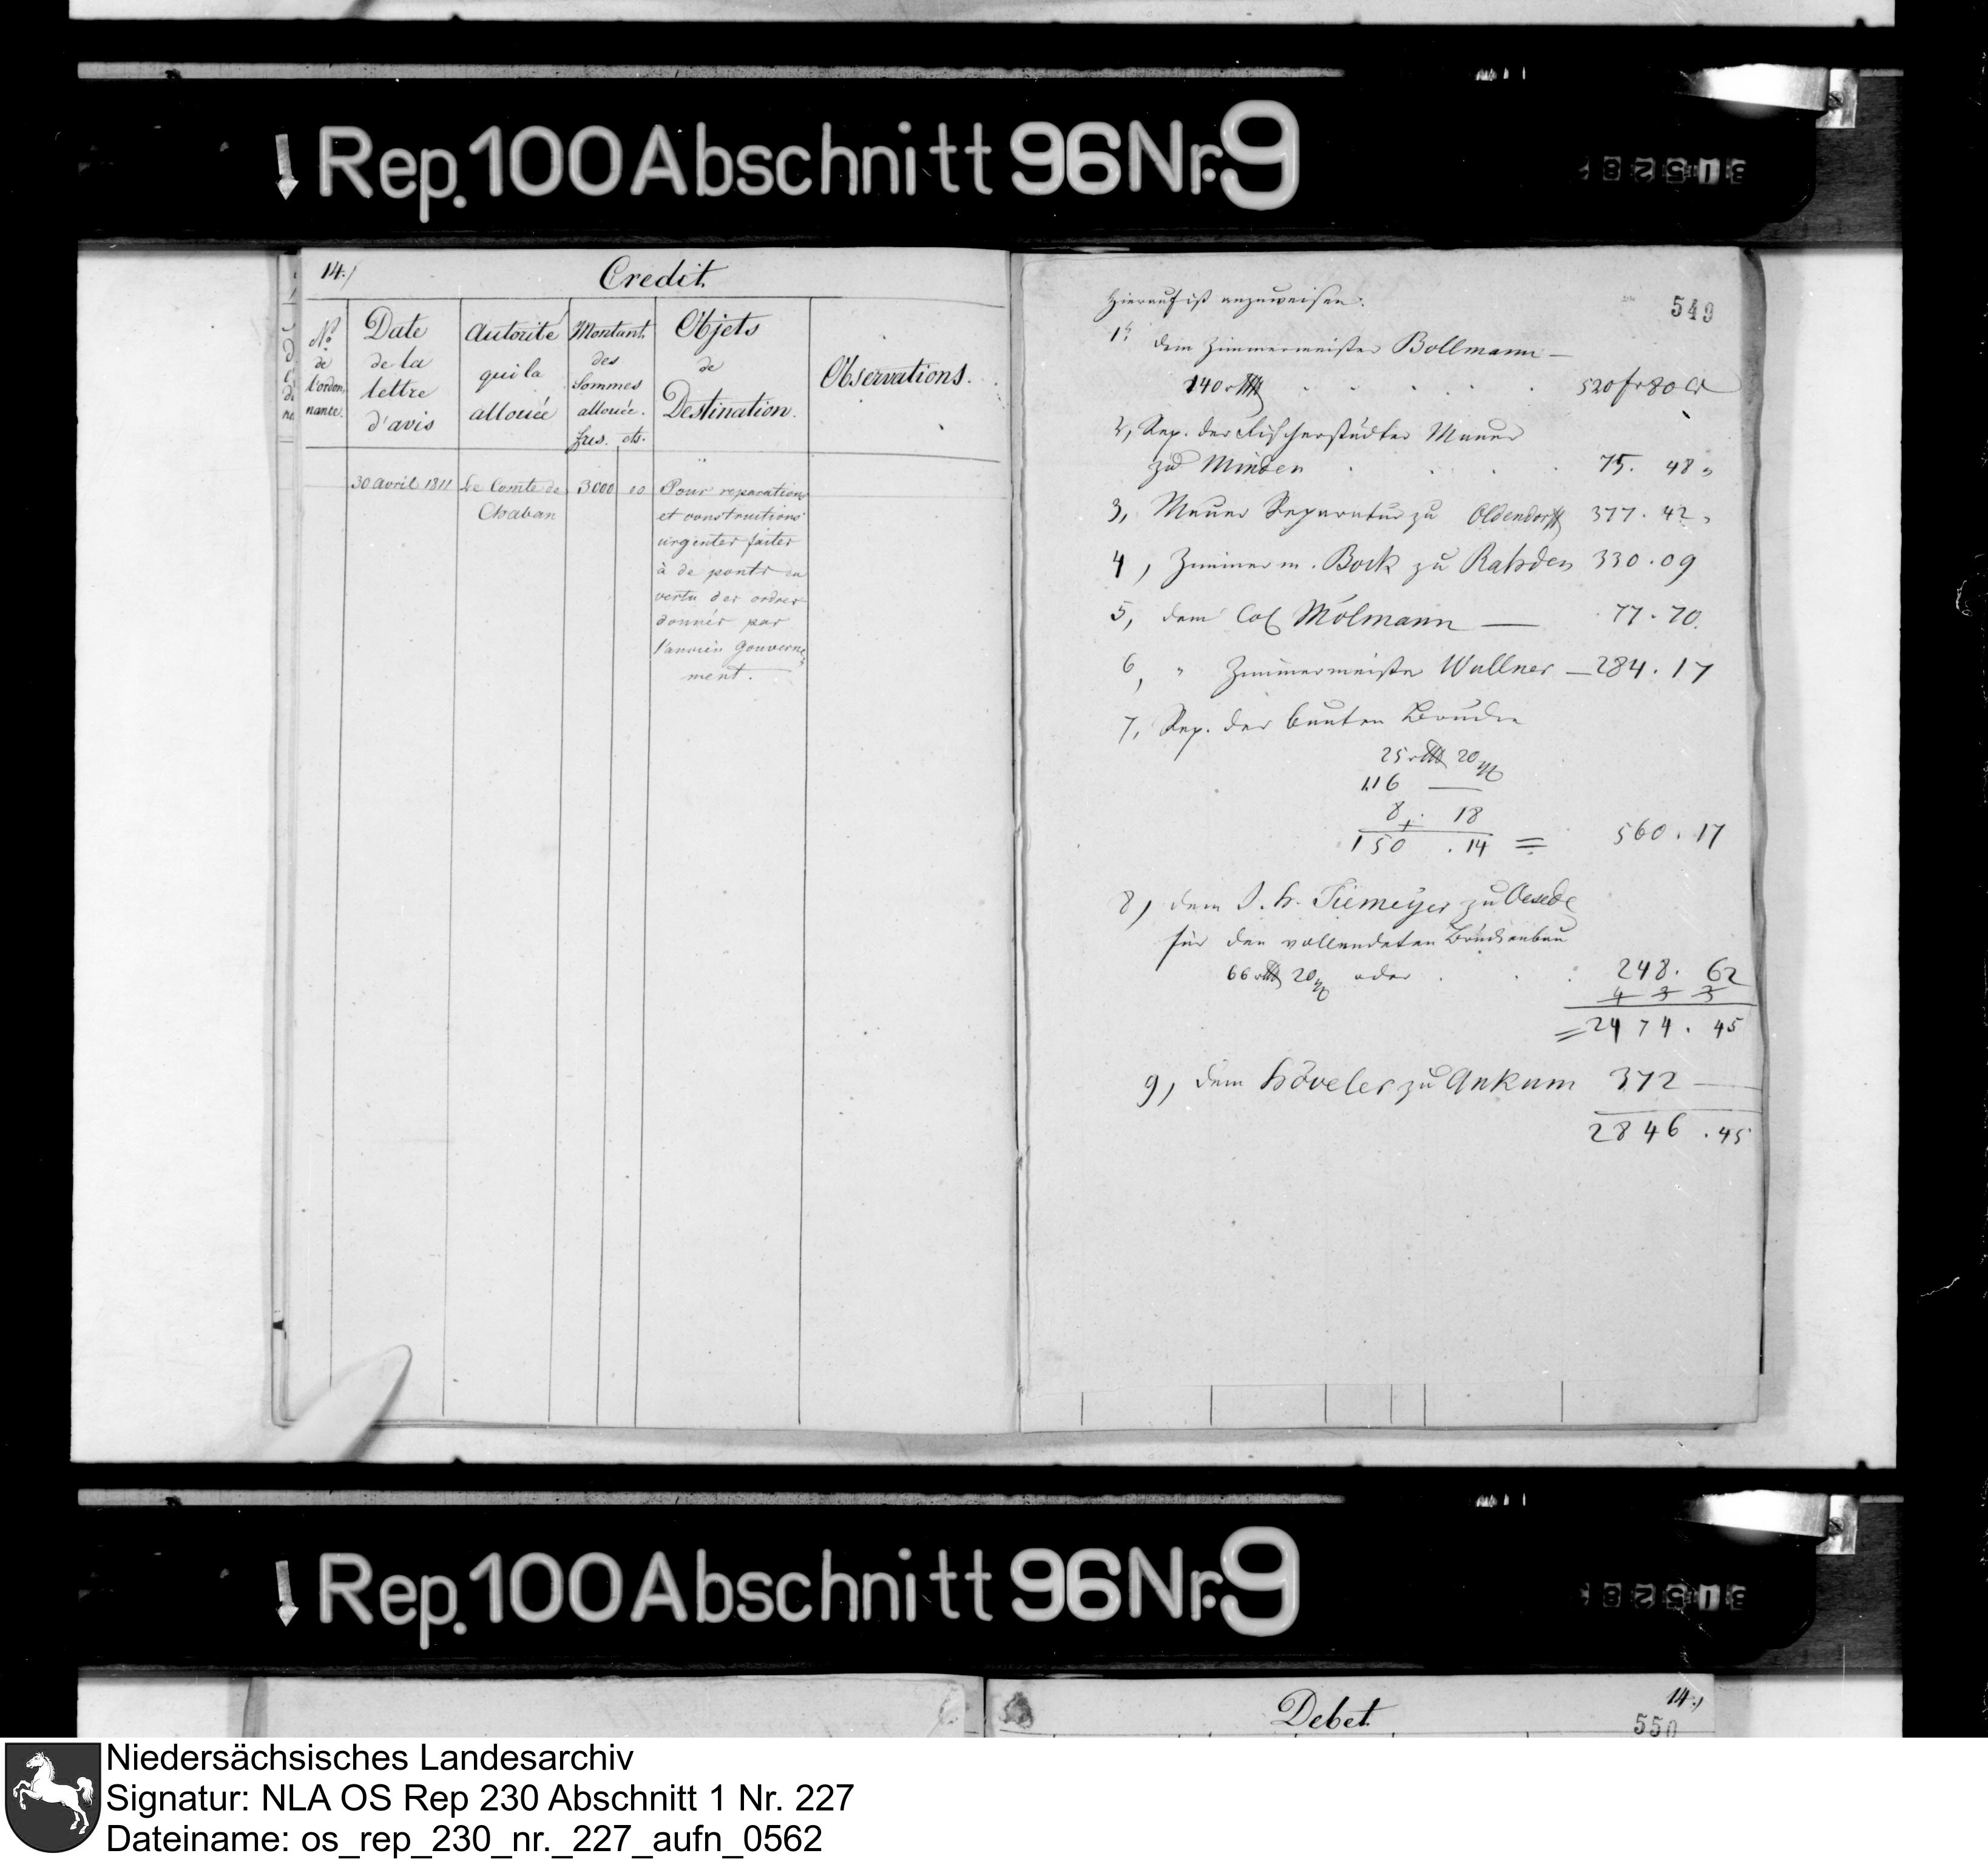 Rep. 100 Abschnitt 96 Nr. 9
14.)
Credit.
No
de
l'ordon,
nance.
Date
de la
lettre
d'avis
Autorité
qui la
allouée
Montant.
des
Sommes
allouée.
frcs. cts.
Objets
de
Destination.
Observations.
30 avril 1811
Le Comte de
Chaban
3000 00
Pour reparations
et constructions
urgentes faites
à de ponts en
vertu des ordres
donnés par
l'ancien Gouverne,
ment.
549
Hierauf ist anzuweisen:
1, dem Zimmermeister Bollmann —
140 rthl . . . . . 520 fr 80 Ct
2, Rep. der Fischerstädter Mauer
zu Minden . . . . 75. 48 "
3, Mauer Reparatur zu Oldendorff 377. 42 "
4, Zimmerm. Bock zu Rahden 330. 09
5, dem Col Mölmann — 77. 70.
6, " Zimmermeister Wullner — 284. 17
7, Rep. der bunten Brücke
25 rthl 20
116 —
8. 18
150 . 14 = 560. 17
8, dem J. H. Tiemeyer zu Oesede
für den vollendeten Brückenbau
66 rthl 20 oder . . . 248. 62
4 3 3
= 2474. 45
9, dem Höveler zu Ankum 372 —
2846 . 45
Rep. 100 Abschnitt 96 Nr. 9
Debet.
14.)
550
Niedersächsisches Landesarchiv
Signatur: NLA OS Rep 230 Abschnitt 1 Nr. 227
Dateiname: os_rep_230_nr._227_aufn_0562